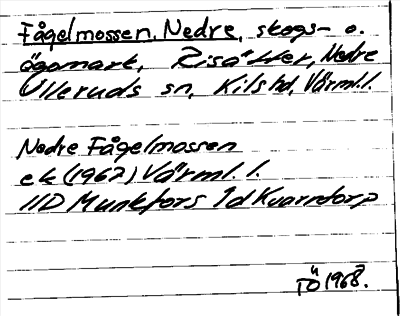 Fågelmossen, Nedre, skogs- o.
ägomark, Risäter, Nedre
Ulleruds sn, Kils hd, Värml. l.
Nedre Fågelmossen
ek (1967) Värml. l.
11D Munkfors 1d Kvarntorp
TÖ 1968.